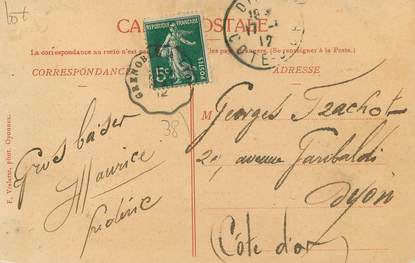 lot
CARTE POSTALE
La correspondance au recto n'est pas
(Se renseigner à la Poste.)
CORRESPONDANCE
ADRESSE
REPUBLIQUE FRANÇAISE
5c
POSTES
GRENOB
12
DIJON
17
12
CÔTE-D'OR
38
Gros baiser
Maurice
Frédéric
Georges Frachot
20, avenue Garibaldi
Dijon
(Côte d'or)
F. Violette, phot. Oyonnax.